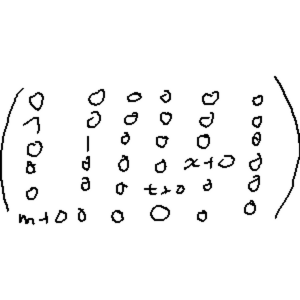 0 0 0 0 0 0
1 0 0 0 0 0
0 1 0 0 0 0
0 0 0 0 x+0 0
0 0 0 t+0 0 0
m+0 0 0 0 0 0